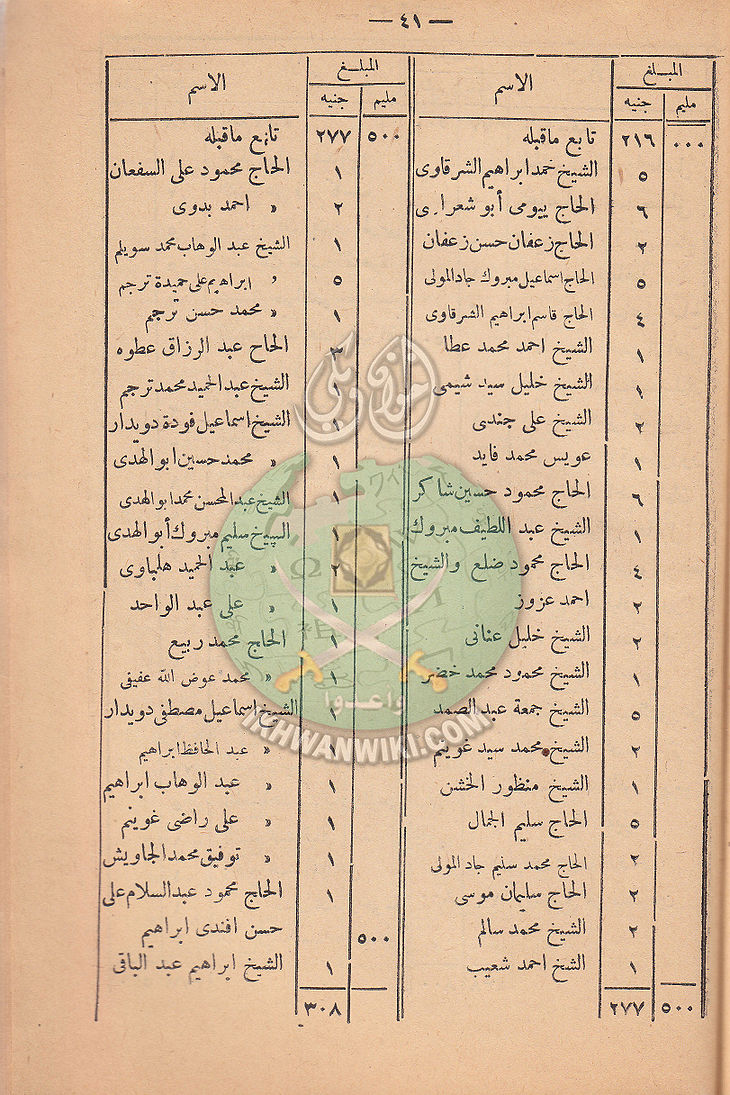 — ٤١ —
المبلغ الاسم
مليم جنيه
٠٠٠ ٢١٦ تابع ماقبله
٥ الشيخ حمد ابراهيم الشرقاوى
٦ الحاج بيومى أبو شعراوى
٢ الحاج زعفان حسن زعفان
٥ الحاج اسماعيل مبروك جاد المولى
٤ الحاج قاسم ابراهيم الشرقاوى
١ الشيخ احمد محمد عطا
١ الشيخ خليل سيد شيمى
٢ الشيخ على جندى
١ عويس محمد فايد
٦ الحاج محمود حسين شاكر
١ الشيخ عبد اللطيف مبروك
٤ الحاج محمود ضلع والشيخ
٢ احمد عزوز
٢ الشيخ خليل عنانى
١ الشيخ محمود محمد خضر
٥ الشيخ جمعة عبد الصمد
٢ الشيخ محمد سيد غوينم
١ الشيخ منظور الخشن
٥ الحاج سليم الجمال
٢ الحاج محمد سليم جاد المولى
٢ الحاج سليمان موسى
٢ الشيخ محمد سالم
١ الشخ احمد شعيب
٥٠٠ ٢٧٧
المبلغ الاسم
مليم جنيه
٥٠٠ ٢٧٧ تابع ماقبله
١ الحاج محمود على السفعان
٢ » احمد بدوى
١ الشيخ عبد الوهاب محمد سويلم
٥ » ابراهيم على حميدة ترجم
١ » محمد حسن ترجم
٣ الحاج عبد الرزاق عطوه
١ الشيخ عبد الحميد محمد ترجم
١ الشيخ اسماعيل فودة دويدار
١ » محمد حسين ابو الهدى
١ الشيخ عبد المحسن محمد ابو الهدى
١ الشيخ سليم مبروك أبو الهدى
٢ » عبد الحميد هلباوى
١ » على عبد الواحد
١ الحاج محمد ربيع
١ » محمد عوض الله عفيفى
١ الشيخ اسماعيل مصطفى دويدار
١ » عبد الحافظ ابراهيم
١ » عبد الوهاب ابراهيم
١ » على راضى غوينم
١ » توفيق محمد الجاويش
١ الحاج محمود عبد السلام على
٥٠٠ حسن افندى ابراهيم
١ الشيخ ابراهيم عبد الباقى
٣٠٨
إخوان ويكي
وأعدوا
IKHWANWIKI.COM